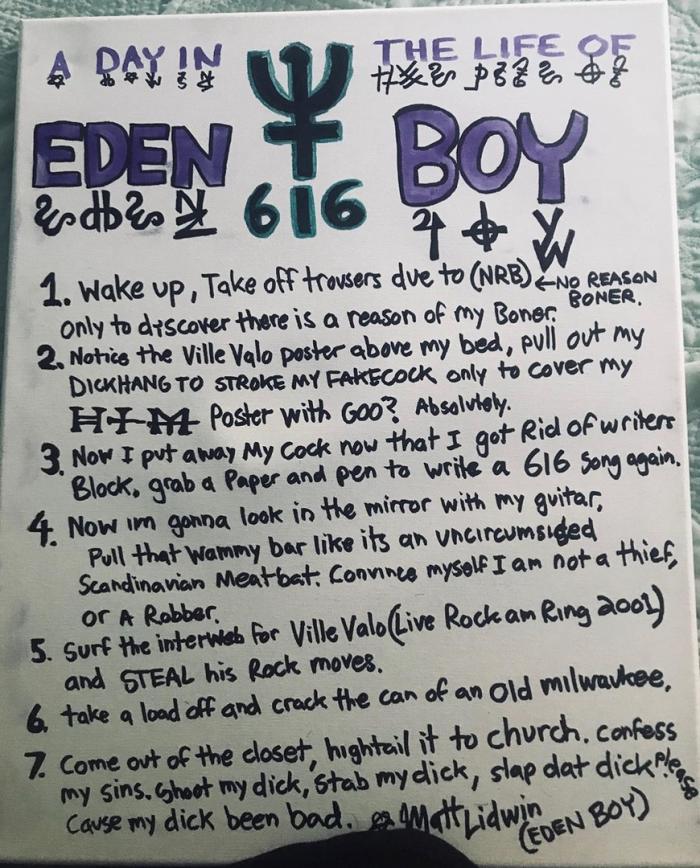 A DAY IN THE LIFE OF
EDEN BOY
616
1. Wake up, Take off trousers due to (NRB) ← NO REASON BONER.
only to discover there is a reason of my Boner.
2. Notice the Ville Valo poster above my bed, pull out my
DICKHANG TO STROKE MY FAKECOCK only to cover my
HIM Poster with GOO? Absolutely.
3. Now I put away My Cock now that I got Rid of writers
Block, grab a Paper and pen to write a 616 song again.
4. Now im gonna look in the mirror with my guitar,
Pull that wammy bar like its an uncircumsiged
Scandinavian Meatbat. Convince myself I am not a thief,
or A Robber.
5. Surf the interweb for Ville Valo (Live Rock am Ring 2001)
and STEAL his Rock moves.
6. take a load off and crack the can of an Old milwaukee.
7. Come out of the closet, hightail it to church. confess
my sins. Shoot my dick, Stab my dick, slap dat dick Please
Cause my dick been bad. Matt Lidwin
(EDEN BOY)